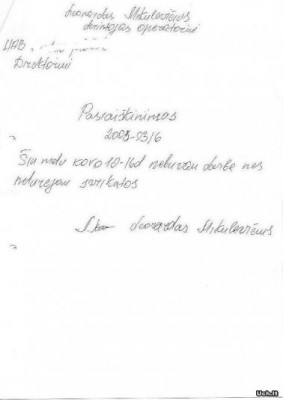 Leonardas Mikulevičius
operatorius
UAB
Direktoriui
Pasiaiškinimas
Šių metų kovo 10-16d nebuvau darbe nes
neturėjau sveikatos
Leonardas Mikulevičius
Uch.lt